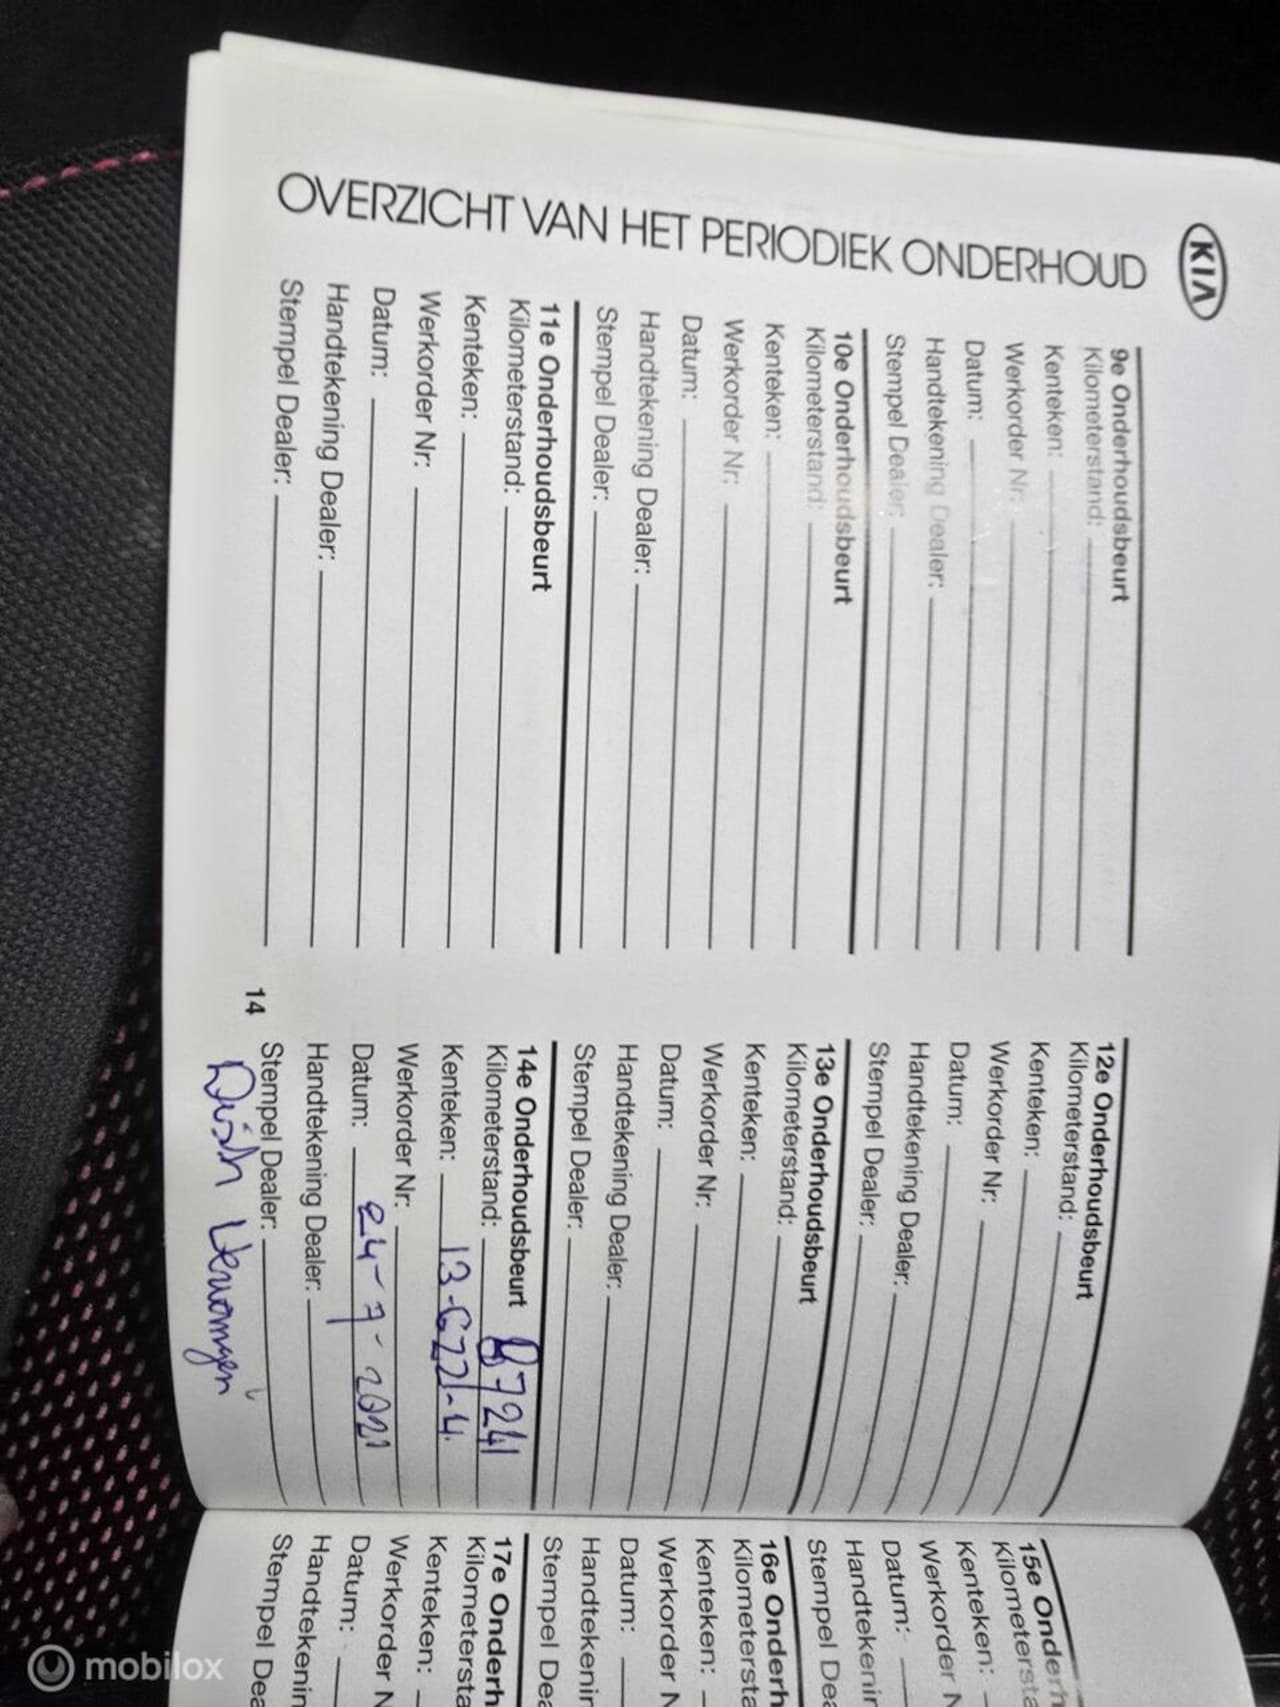 KIA
OVERZICHT VAN HET PERIODIEK ONDERHOUD
9e Onderhoudsbeurt
Kilometerstand:
Kenteken:
Werkorder Nr:
Datum:
Handtekening Dealer:
Stempel Dealer:
10e Onderhoudsbeurt
Kilometerstand:
Kenteken:
Werkorder Nr:
Datum:
Handtekening Dealer:
Stempel Dealer:
11e Onderhoudsbeurt
Kilometerstand:
Kenteken:
Werkorder Nr:
Datum:
Handtekening Dealer:
Stempel Dealer:
12e Onderhoudsbeurt
Kilometerstand:
Kenteken:
Werkorder Nr:
Datum:
Handtekening Dealer:
Stempel Dealer:
13e Onderhoudsbeurt
Kilometerstand:
Kenteken:
Werkorder Nr:
Datum:
Handtekening Dealer:
Stempel Dealer:
14e Onderhoudsbeurt
Kilometerstand: 87241
Kenteken:
Werkorder Nr:
Datum: 24-7-2021
Handtekening Dealer:
Stempel Dealer:
14
15e Onderh
Kilometersta
Kenteken:
Werkorder N
Datum:
Handtekenin
Stempel Dea
16e Onderh
Kilometersta
Kenteken:
Werkorder N
Datum:
Handtekenin
Stempel Dea
17e Onderh
Kilometersta
Kenteken:
Werkorder N
Datum:
Handtekenin
Stempel Dea
mobilox